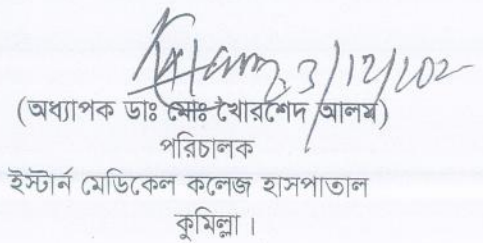 3/12/202
(অধ্যাপক ডাঃ মোঃ খোরশেদ আলম)
পরিচালক
ইস্টার্ন মেডিকেল কলেজ হাসপাতাল
কুমিল্লা।